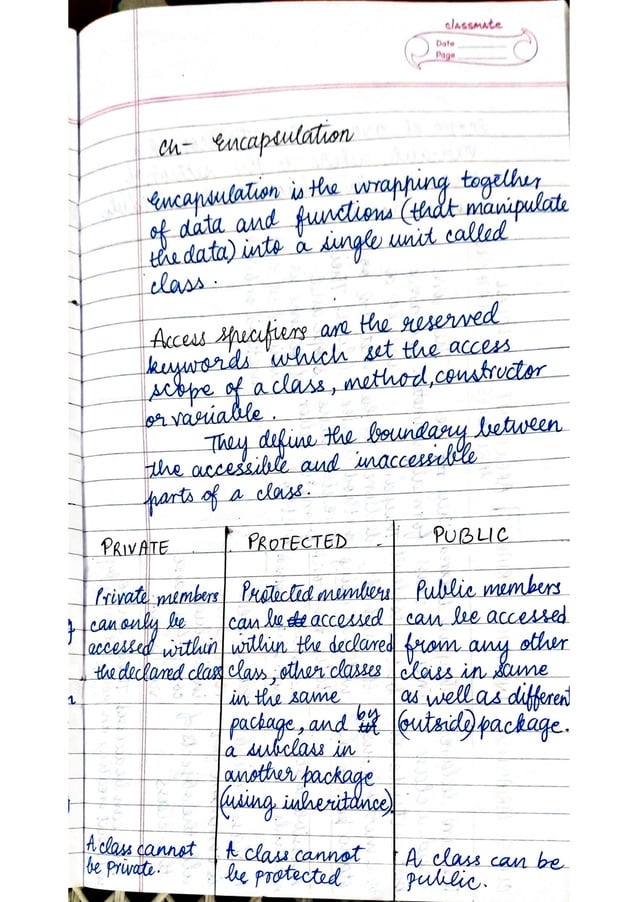 classmate
Date
Page
Ch- Encapsulation
Encapsulation is the wrapping together
of data and functions (that manipulate
the data) into a single unit called
class.
Access specifiers are the reserved
keywords which set the access
scope of a class, method, constructor
or variable.
They define the boundary between
the accessible and inaccessible
parts of a class.
PRIVATE
Private members
can only be
accessed within
the declared class
A class cannot
be Private.
PROTECTED
Protected members
can be accessed
within the declared
class, other classes
in the same
package, and by
a subclass in
another package
(using inheritance).
A class cannot
be protected
PUBLIC
Public members
can be accessed
from any other
class in same
as well as different
(outside) package.
A class can be
public.